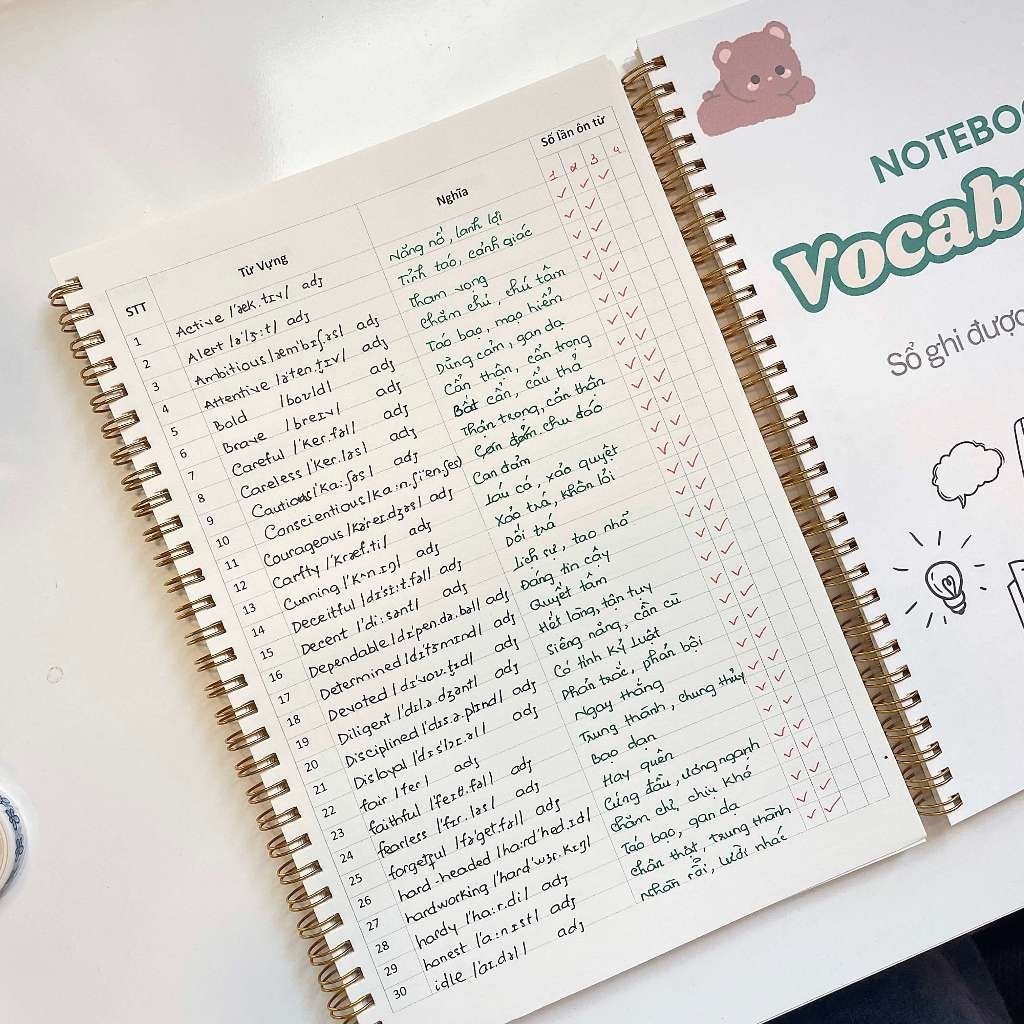 STT Từ Vựng Nghĩa Số lần ôn từ
1 2 3 4
1 Active /'æk.tɪv/ adj Năng nổ, lanh lợi
2 Alert /ə'lɜ:t/ adj Tỉnh táo, cảnh giác
3 Ambitious /æm'bɪʃəs/ adj Tham vọng
4 Attentive /ə'ten.t̬ɪv/ adj Chăm chú, chú tâm
5 Bold /boʊld/ adj Táo bạo, mạo hiểm
6 Brave /breɪv/ adj Dũng cảm, gan dạ
7 Careful /'ker.fəl/ adj Cẩn thận, cẩn trọng
8 Careless /'ker.ləs/ adj Bất cẩn, cẩu thả
9 Cautious /'ka:.ʃəs/ adj Thận trọng, cẩn thận
10 Conscientious /ka:n.ʃi'en.ʃəs/ chu đáo
11 Courageous /kə'reɪ.dʒəs/ adj Can đảm
12 Carfty /'kræf.ti/ adj Láu cá, xảo quyệt
13 Cunning /'kʌn.ɪŋ/ adj Xảo trá, khôn lỏi
14 Deceitful /dɪ'si:t.fəl/ adj Dối trá
15 Decent /'di:.sənt/ adj Lịch sự, tao nhã
16 Dependable /dɪ'pen.də.bəl/ adj Đáng tin cậy
17 Determined /dɪ'tɜmɪnd/ adj Quyết tâm
18 Devoted /dɪ'voʊ.t̬ɪd/ adj Hết lòng, tận tuỵ
19 Diligent /'dɪl.ə.dʒənt/ adj Siêng năng, cần cù
20 Disciplined /'dɪs.ə.plɪnd/ adj Có tính kỷ luật
21 Disloyal /dɪs'lɔɪ.əl/ adj Phản trắc, phản bội
22 fair /fer/ adj Ngay thẳng
23 faithful /'feɪθ.fəl/ adj Trung thành, chung thủy
24 fearless /'fɪr.ləs/ adj Bạo dạn
25 forgetful /fə'get.fəl/ adj Hay quên
26 hard-headed /ha:rd'hed.ɪd/ Cứng đầu, ương ngạnh
27 hardworking /'hard'wɜr.kɪŋ/ chăm chỉ, chịu khó
28 hardy /'ha:r.di/ adj Táo bạo, gan dạ
29 honest /'a:nɪst/ adj chân thật, trung thành
30 idle /'aɪ.dəl/ adj nhàn rỗi, lười nhác
NOTEBO
Vocab
Sổ ghi được